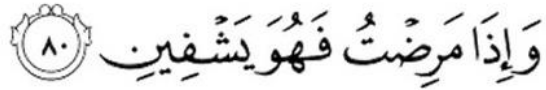 وَإِذَا مَرِضْتُ فَهُوَ يَشْفِينِ ٨٠